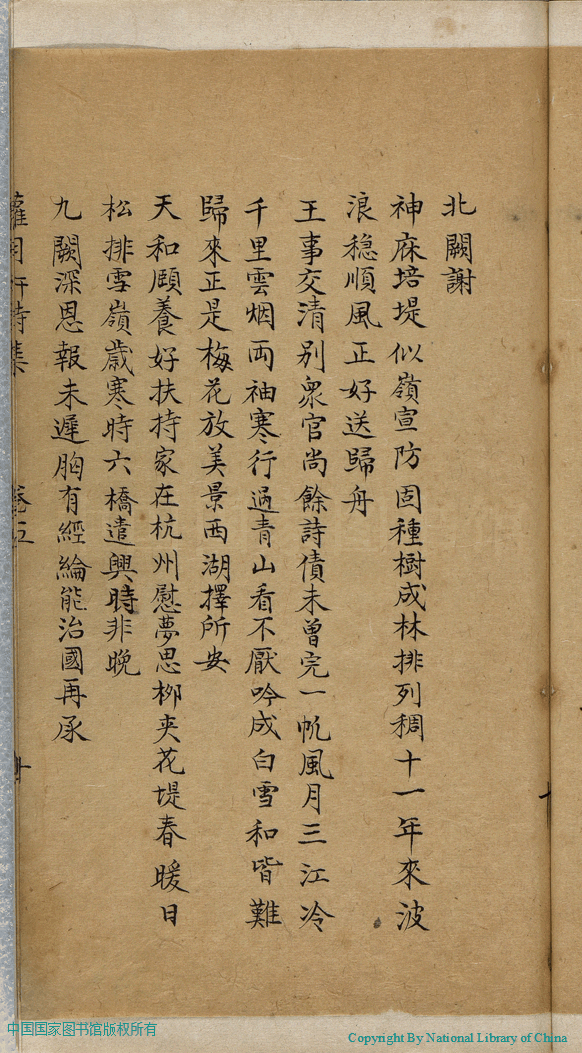 北闕謝
神庥培堤似嶺宣防固種樹成林排列稠十一年來波
浪稳順風正好送歸舟
王事交清別衆官尚餘詩債未曾完一帆風月三江冷
千里雲烟両袖寒行過青山看不厭吟成白雪和皆難
歸來正是梅花放美景西湖擇所安
天和頤養好扶持家在杭州慰夢思栁夾花堤春暖日
松排雪嶺歲寒時六橋遣興時非晚
九闕深恩報未遲胸有經綸能治國再承
中国国家图书馆版权所有
Copyright By National Library of China